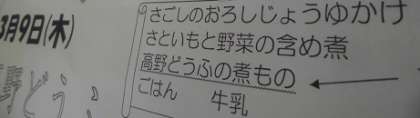 3月9日(木)
さごしのおろしじょうゆかけ
さといもと野菜の含め煮
高野どうふの煮もの
ごはん 牛乳
野どう